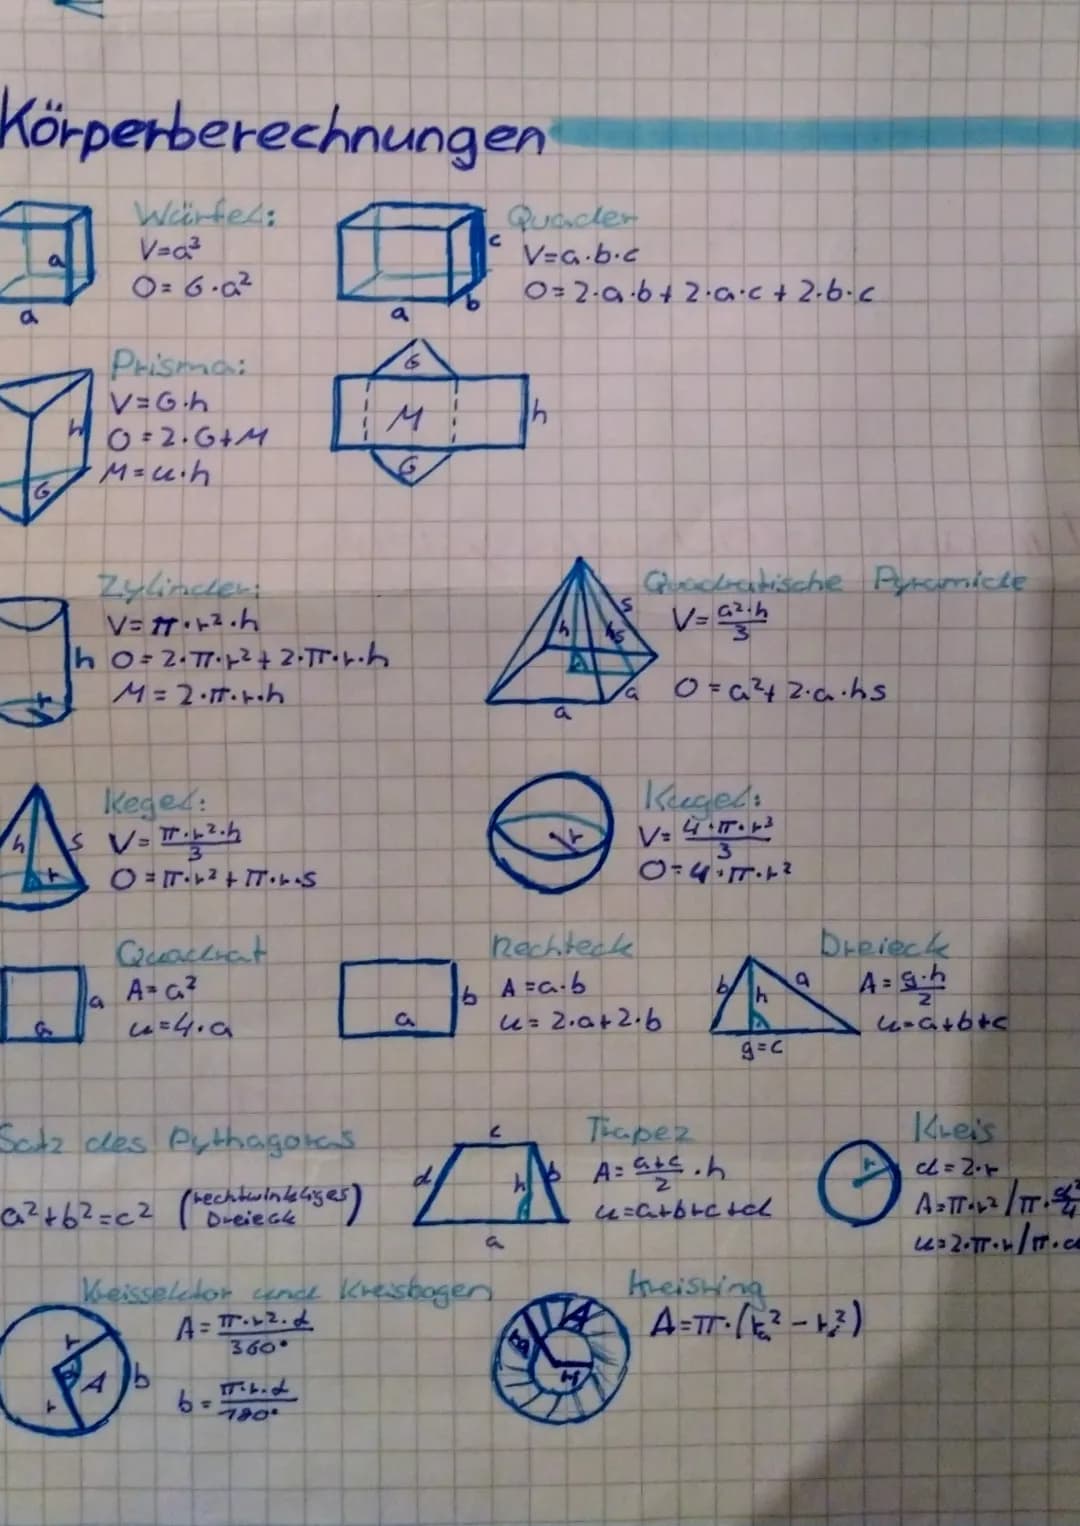 Körperberechnungen
Würfel:
V=a³
O=6·a²
a
a
Quader
V=a·b·c
O=2·a·b+2·a·c+2·b·c
c
b
a
Prisma:
V=G·h
O=2·G+M
M=u·h
h
G
G
M
h
G
Zylinder:
V=π·r²·h
O=2·π·r²+2·π·r·h
M=2·π·r·h
h
r
Quadratische Pyramide
V=a²·h/3
O=a²+2·a·hs
s
h
hs
a
a
Kegel:
V=π·r²·h/3
O=π·r²+π·r·s
h
s
r
Kugel:
V=4·π·r³/3
O=4·π·r²
r
Quadrat
A=a²
u=4·a
a
a
Rechteck
A=a·b
u=2·a+2·b
b
a
Dreieck
A=g·h/2
u=a+b+c
b
h
a
g=c
Satz des Pythagoras
a²+b²=c² (rechtwinkliges
Dreieck)
Trapez
A=a+c/2·h
u=a+b+c+d
c
d
h
b
a
Kreis
d=2·r
A=π·r²/π·d²/4
u=2·π·r/π·d
r
Kreissektor und Kreisbogen
A=π·r²·α/360°
b=π·r·α/180°
r
α
A
b
r
Kreisring
A=π·(rₐ²-rᵢ²)
A